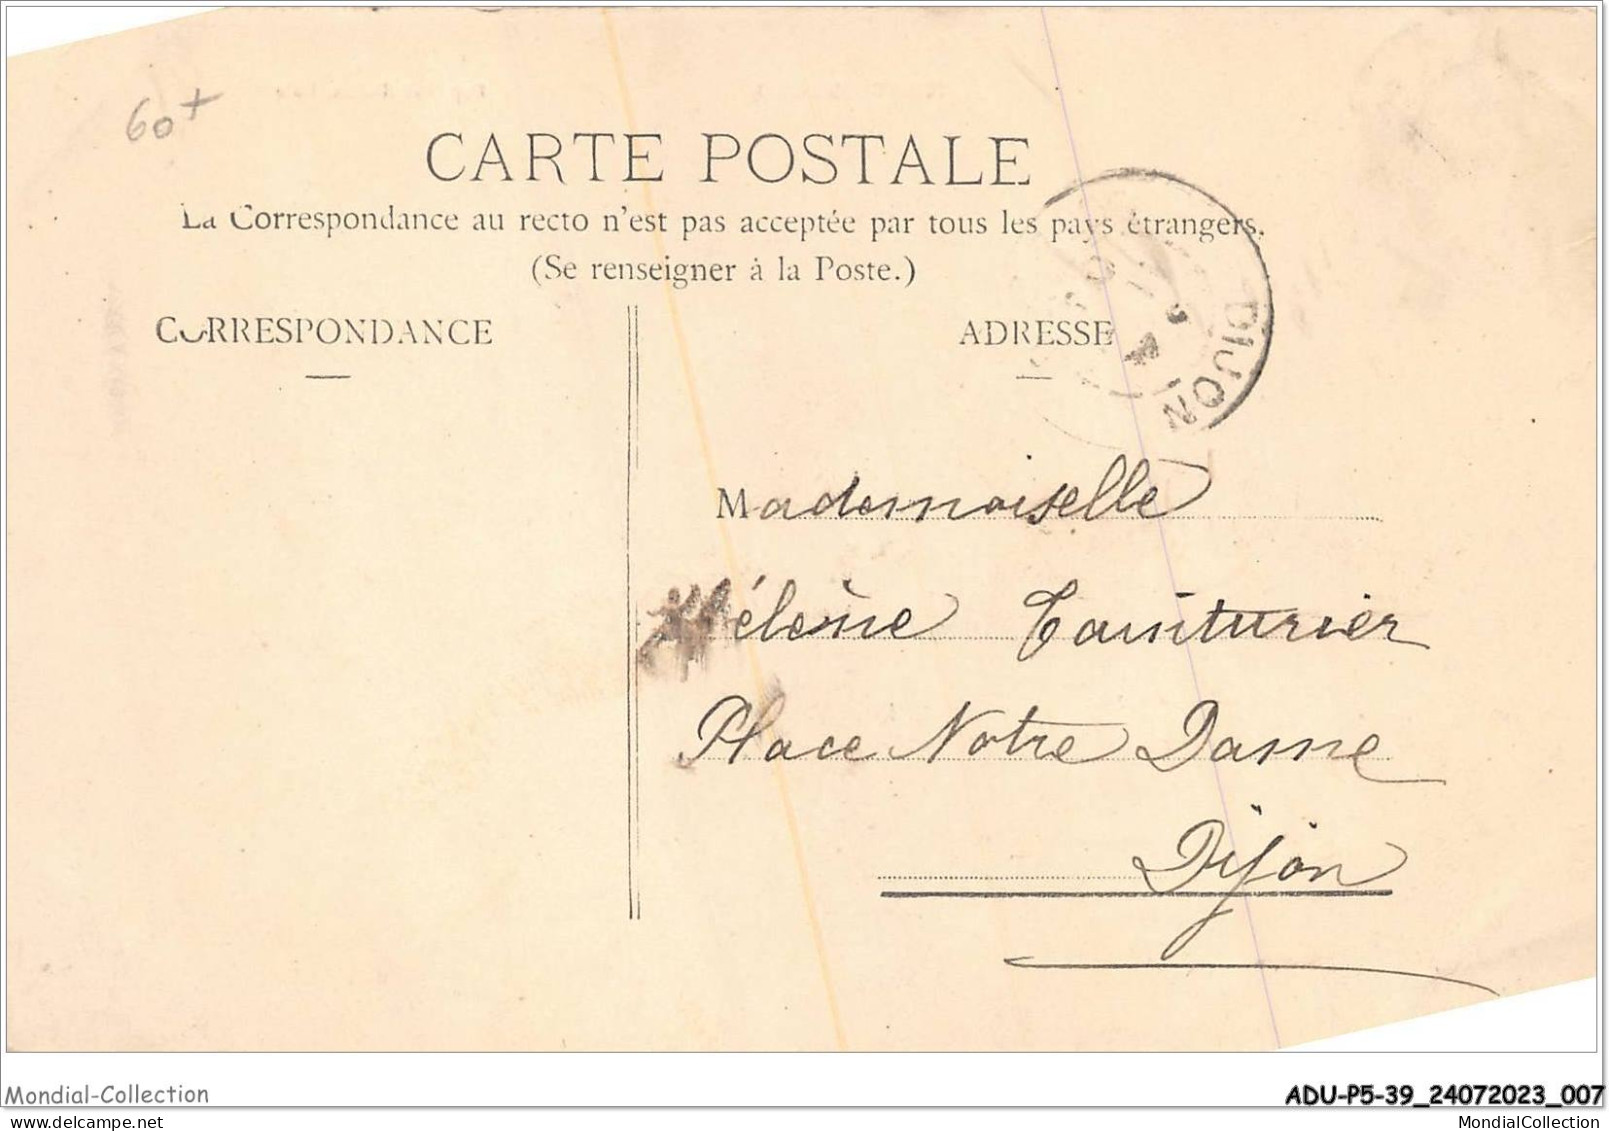 60+
CARTE POSTALE
La Correspondance au recto n'est pas acceptée par tous les pays étrangers.
(Se renseigner à la Poste.)
CORRESPONDANCE
ADRESSE
DIJON
Mademoiselle
Hélène
Place Notre Dame
Dijon
Mondial-Collection
ADU-P5-39_24072023_007
MondialCollection
MondialCollection